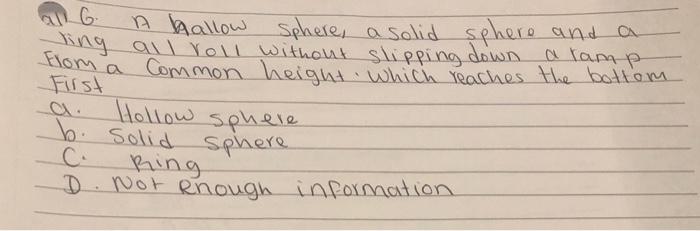 all 6. A hallow sphere, a solid sphere and a
ring all roll without slipping down a ramp
From a Common height. which reaches the bottom
First
a. Hollow sphere
b. Solid sphere
C. Ring
D. Not enough information